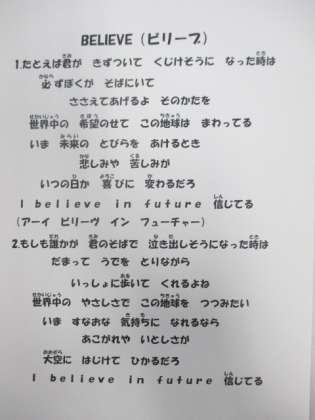 BELIEVE（ビリーブ）
1.たとえば君が きずついて くじけそうに なった時は
必ずぼくが そばにいて
ささえてあげるよ そのかたを
世界中の 希望のせて この地球は まわってる
いま 未来の とびらを あけるとき
悲しみや 苦しみが
いつの日か 喜びに 変わるだろ
I believe in future 信じてる
（アーイ ビリーヴ イン フューチャー）
2.もしも誰かが 君のそばで 泣き出しそうになった時は
だまって うでを とりながら
いっしょに歩いて くれるよね
世界中の やさしさで この地球を つつみたい
いま すなおな 気持ちに なれるなら
あこがれや いとしさが
大空に はじけて ひかるだろ
I believe in future 信じてる